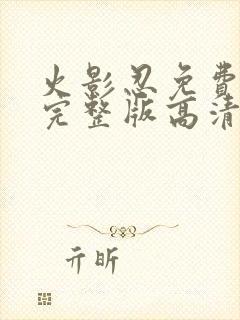 火影忍免費
完整版高清
亓昕